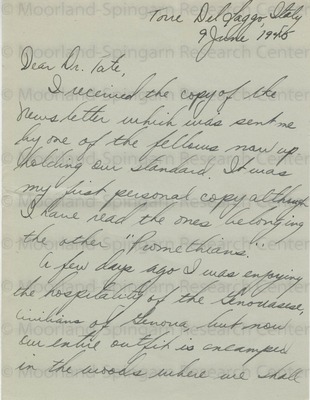 Torre Del Laggo Italy
9 June 1945
Dear Dr. Tate,
I received the copy of the
Newsletter which was sent me
by one of the fellows now up
holding our standard. It was
my first personal copy although
I have read the ones belonging
the other "Prometheans".
A few days ago I was enjoying
the hospitality of the Genovasese,
civilians of Genova, but now
our entire outfit is encamped
in the woods where we shall
© Moorland-Spingarn Research Center